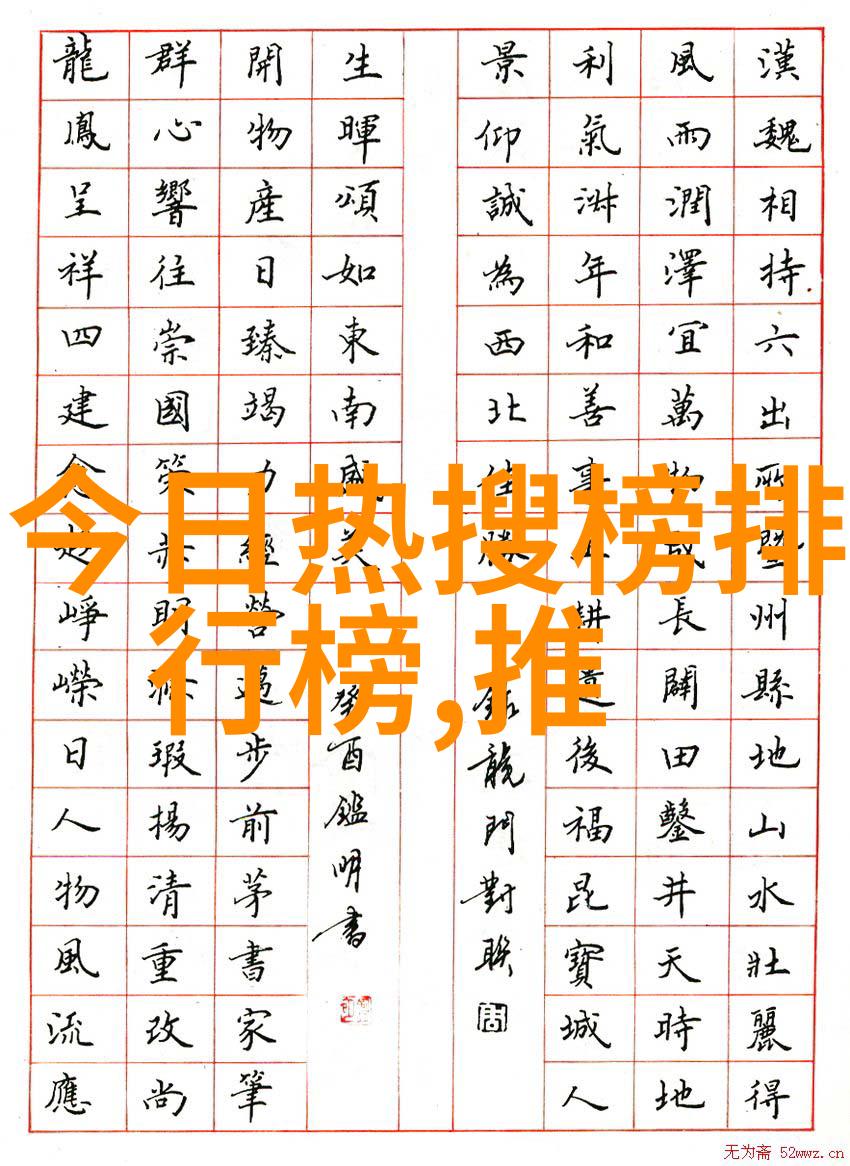 今日热搜榜排
行榜,推
漢魏相持六出所暨州縣地山水壯麗得
風雨潤澤宜萬物咸長闢田鑿井天時地
利氣淑年和善事耕造後福昆寶城人
景仰誠為西北佳勝龍門對聯
生暉頌如東南美癸酉鑑明書
開物產日臻竭力經營邁步前茅書家筆
群心響往崇國策明瑕揚清重改尚
龍鳳呈祥四建崢嶸日人物風流應
无为斋 52wwz.cn